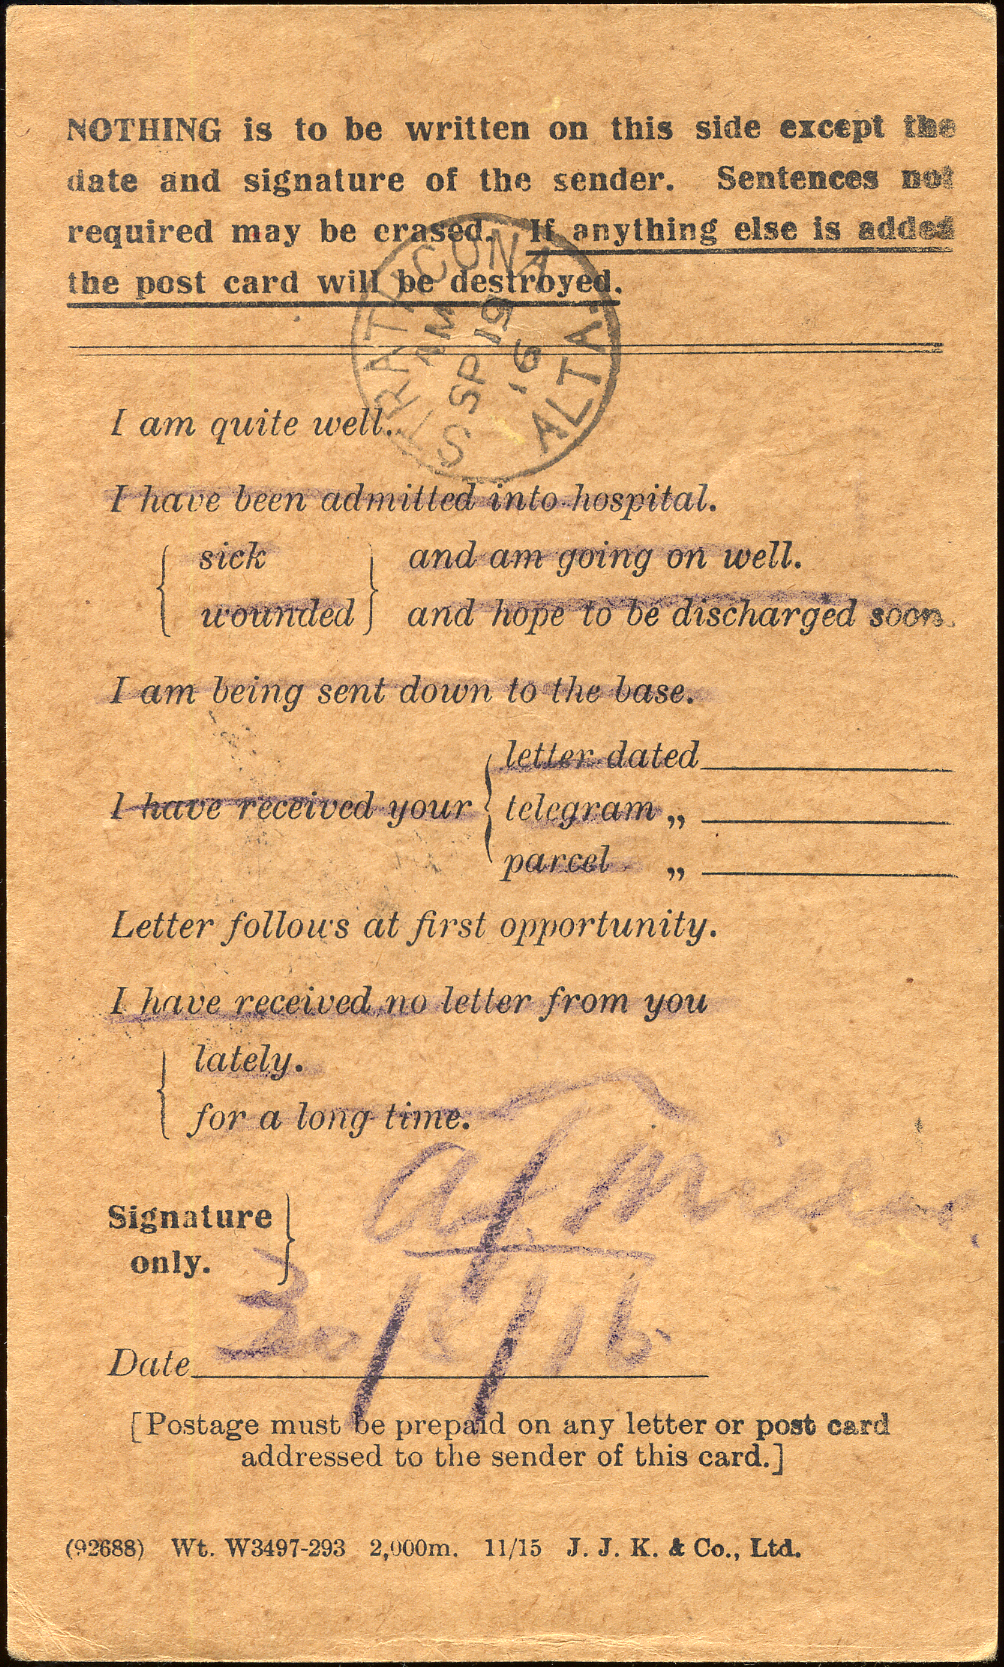 NOTHING is to be written on this side except the
date and signature of the sender. Sentences not
required may be erased. If anything else is added
the post card will be destroyed.
STRATHCONA
AM
SP 19
16
ALTA.
I am quite well.
I have been admitted into hospital.
sick and am going on well.
wounded and hope to be discharged soon.
I am being sent down to the base.
letter dated
I have received your telegram „
parcel „
Letter follows at first opportunity.
I have received no letter from you
lately.
for a long time.
Signature
only.
30/8/16
Date
[Postage must be prepaid on any letter or post card
addressed to the sender of this card.]
(92688) Wt. W3497-293 2,000m. 11/15 J. J. K. & Co., Ltd.